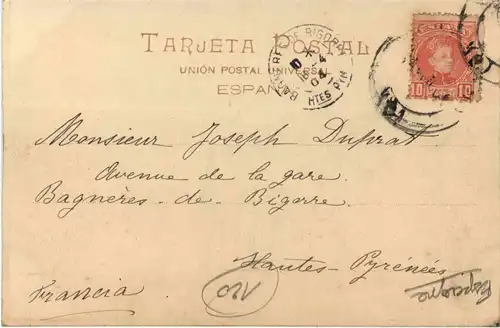 TARJETA POSTAL
UNIÓN POSTAL UNIVERSAL
ESPAÑA
BAGNERES DE BIGORRE
18 - 4
04
HTES PYR
10 10
Monsieur Joseph Duprat
Avenue de la gare.
Bagnères-de-Bigorre
Hautes-Pyrénées
Francia
120
Espagne